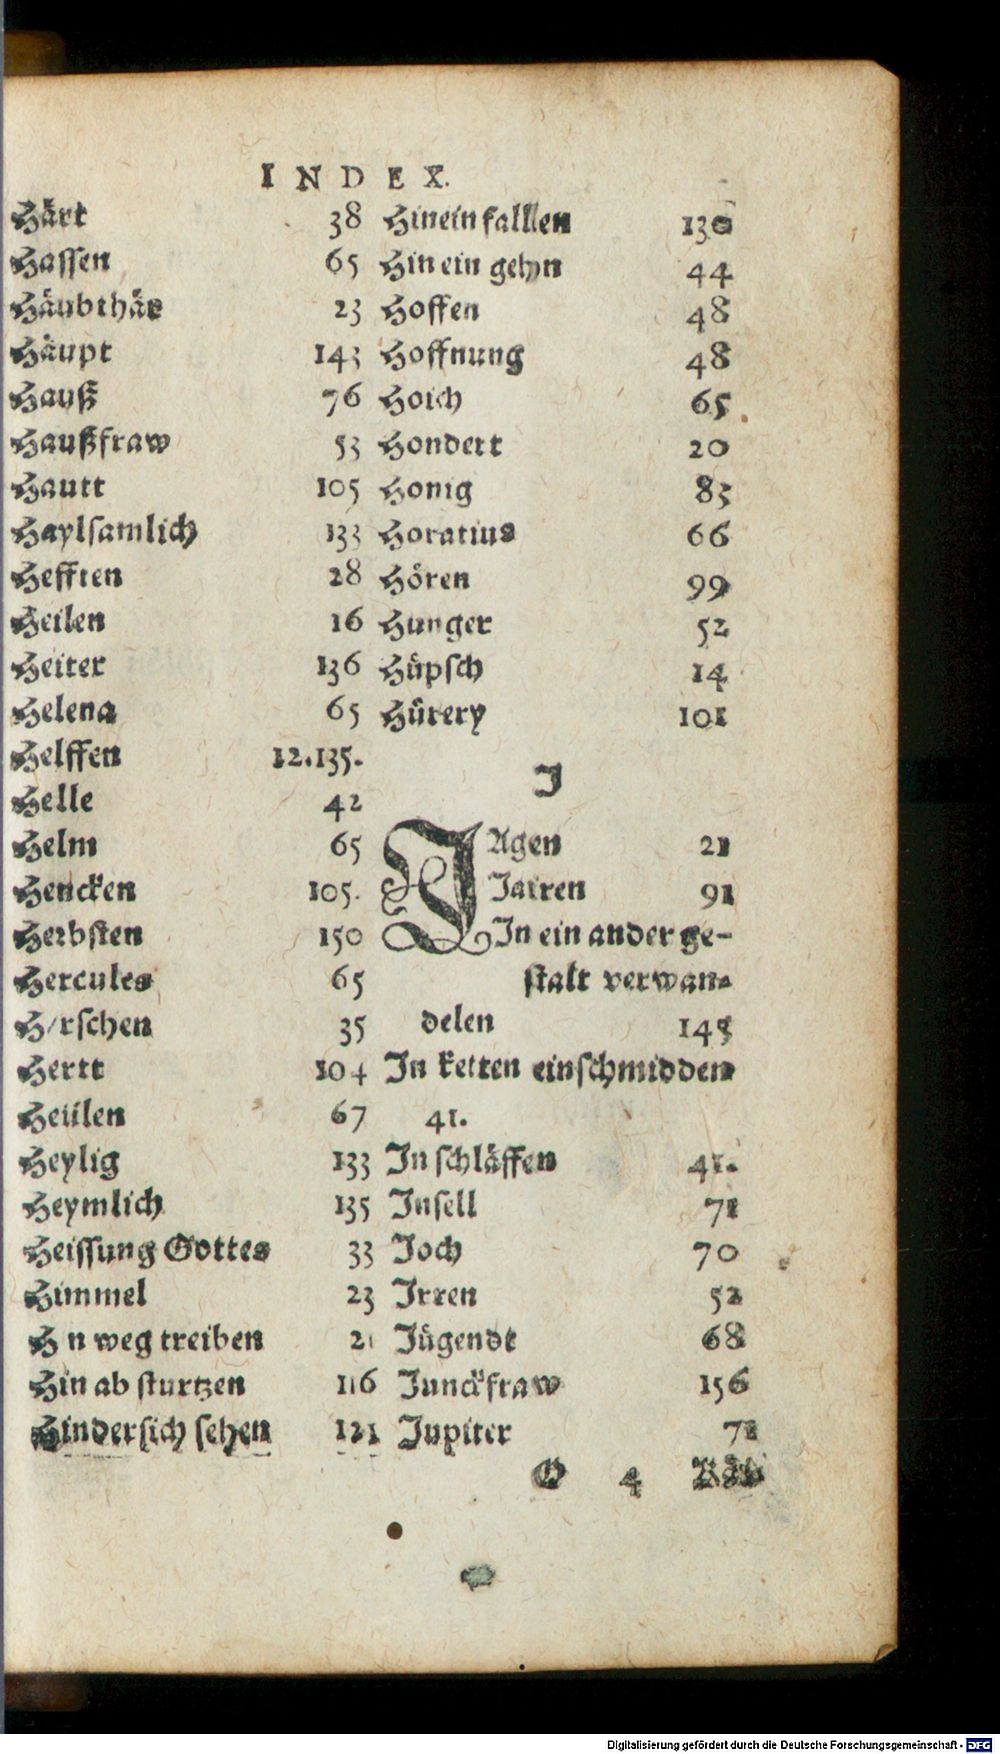 INDEX.
Härt 38
Hassen 65
Häubthär 23
Häupt 143
Hauß 76
Haußfraw 53
Hautt 105
Haylsamlich 133
Hefften 28
Heilen 16
Heiter 136
Helena 65
Helffen 12.135.
Helle 42
Helm 65
Hencken 105.
Herbsten 150
Hercules 65
Hirschen 35
Hertt 104
Heülen 67
Heylig 133
Heymlich 135
Heissung Gottes 33
Himmel 23
Hin weg treiben 21
Hin ab sturtzen 116
Hindersich sehen 121
Hinein falllen 130
Hin ein gehn 44
Hoffen 48
Hoffnung 48
Hoich 65
Hondert 20
Honig 83
Horatius 66
Hören 99
Hunger 52
Hüpsch 14
Hürery 101
J
JAgen 21
Jairen 91
In ein ander ge-
stalt verwan-
delen 145
In ketten einschmidden
41.
In schläffen 41.
Insell 71
Joch 70
Irren 52
Jügendt 68
Junckfraw 156
Jupiter 71
G 4
Digitalisierung gefördert durch die Deutsche Forschungsgemeinschaft - DFG